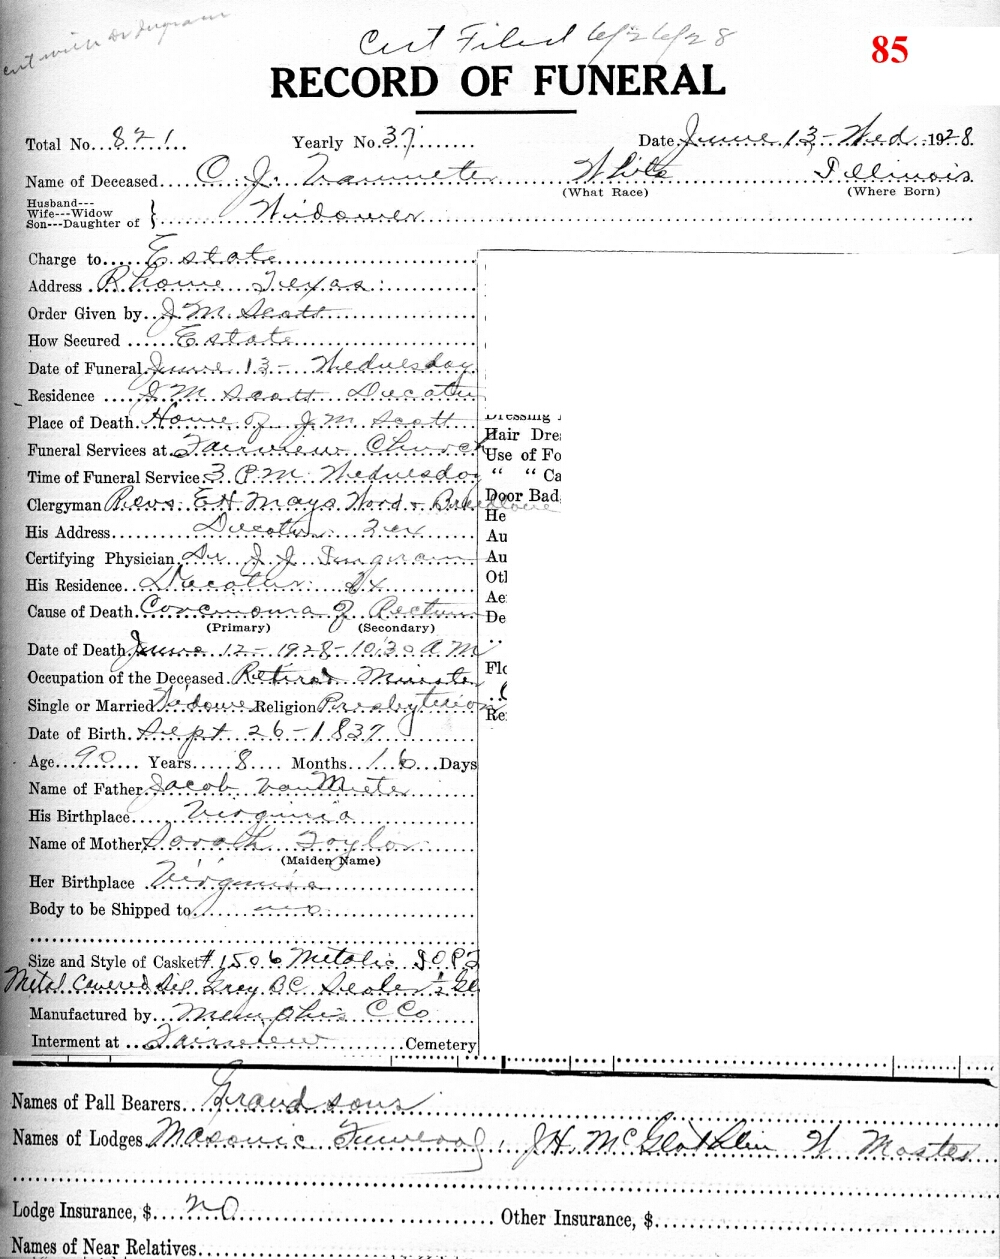 Cert Filed 6/26/28
85
RECORD OF FUNERAL
Total No...821. Yearly No.37......... Date.June 13-Wed.1928.
Name of Deceased....C. J. Vanmeter White Illinois
(What Race) (Where Born)
Husband---
Wife---Widow
Son---Daughter of } Widower
Charge to.....Estate
Address .Rhome Texas
Order Given by..J.M. Scott
How Secured ......Estate
Date of Funeral.June 13- Wednesday
Residence ....J M Scott Decatur
Place of Death.Home of J.M. Scott
Funeral Services at.Fairview Church
Time of Funeral Service.3 P.M. Wednesday
Clergyman Revs. E H Mays Word &
His Address..........Decatur Tex
Certifying Physician.Dr J. J. Ingram
His Residence..Decatur Tx
Cause of Death.Corcinoma of Rectum
(Primary) (Secondary)
Date of Death.June 12-1928-10:30 A M
Occupation of the Deceased.Retired Minister
Single or Married Widower Religion Presbyterion
Date of Birth.Sept 26-1837
Age...90.... Years....8.... Months...16...Days
Name of Father.Jacob VanMeter
His Birthplace.....Virginia
Name of Mother.Sarah Taylor
(Maiden Name)
Her Birthplace .Virginia
Body to be Shipped to.....no
Size and Style of Casket # 1506 Metalic
Metal Covered Sil Grey BC Sealer
Manufactured by...Memphis C Co
Interment at ...Fairview..........Cemetery
Dressing
Hair Dre
Use of Fo
“ “ Ca
Door Bad
He
Au
Au
Otl
Ae
De
Flo
Re
Names of Pall Bearers...Grandsons
Names of Lodges.Masonic Funeral, J.H. McGlothlin W Master
Lodge Insurance, $....no Other Insurance, $
Names of Near Relatives